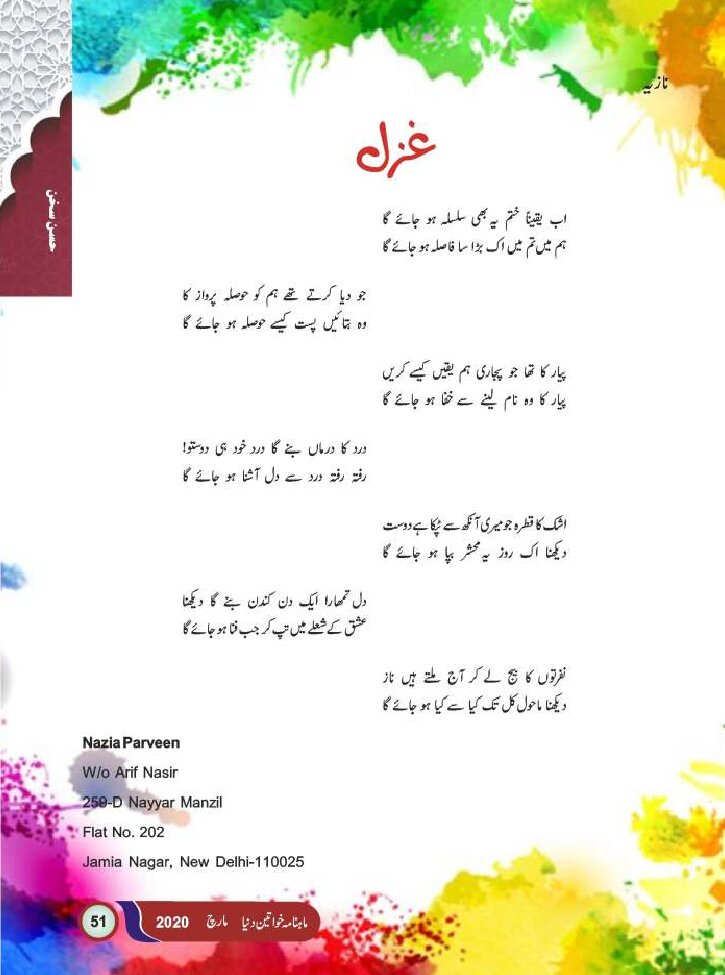 نازیہ
غزل
حسن سخن
اب یقیناً ختم یہ بھی سلسلہ ہو جائے گا
ہم میں تم میں اک بڑا سا فاصلہ ہو جائے گا
جو دیا کرتے تھے ہم کو حوصلہ پرواز کا
وہ بتائیں پست کیسے حوصلہ ہو جائے گا
پیار کا تھا جو پجاری ہم یقیں کیسے کریں
پیار کا وہ نام لینے سے خفا ہو جائے گا
درد کا درماں بنے گا درد خود ہی دوستو!
رفتہ رفتہ درد سے دل آشنا ہو جائے گا
اشک کا قطرہ جو میری آنکھ سے ٹپکا ہے دوست
دیکھنا اک روز یہ محشر بپا ہو جائے گا
دل تمھارا ایک دن کندن بنے گا دیکھنا
عشق کے شعلے میں تپ کر جب فنا ہو جائے گا
نفرتوں کا بیج لے کر آج ملتے ہیں ناز
دیکھنا ماحول کل تک کیا سے کیا ہو جائے گا
Nazia Parveen
W/o Arif Nasir
259-D Nayyar Manzil
Flat No. 202
Jamia Nagar, New Delhi-110025
ماہنامہ خواتین دنیا مارچ 2020 51